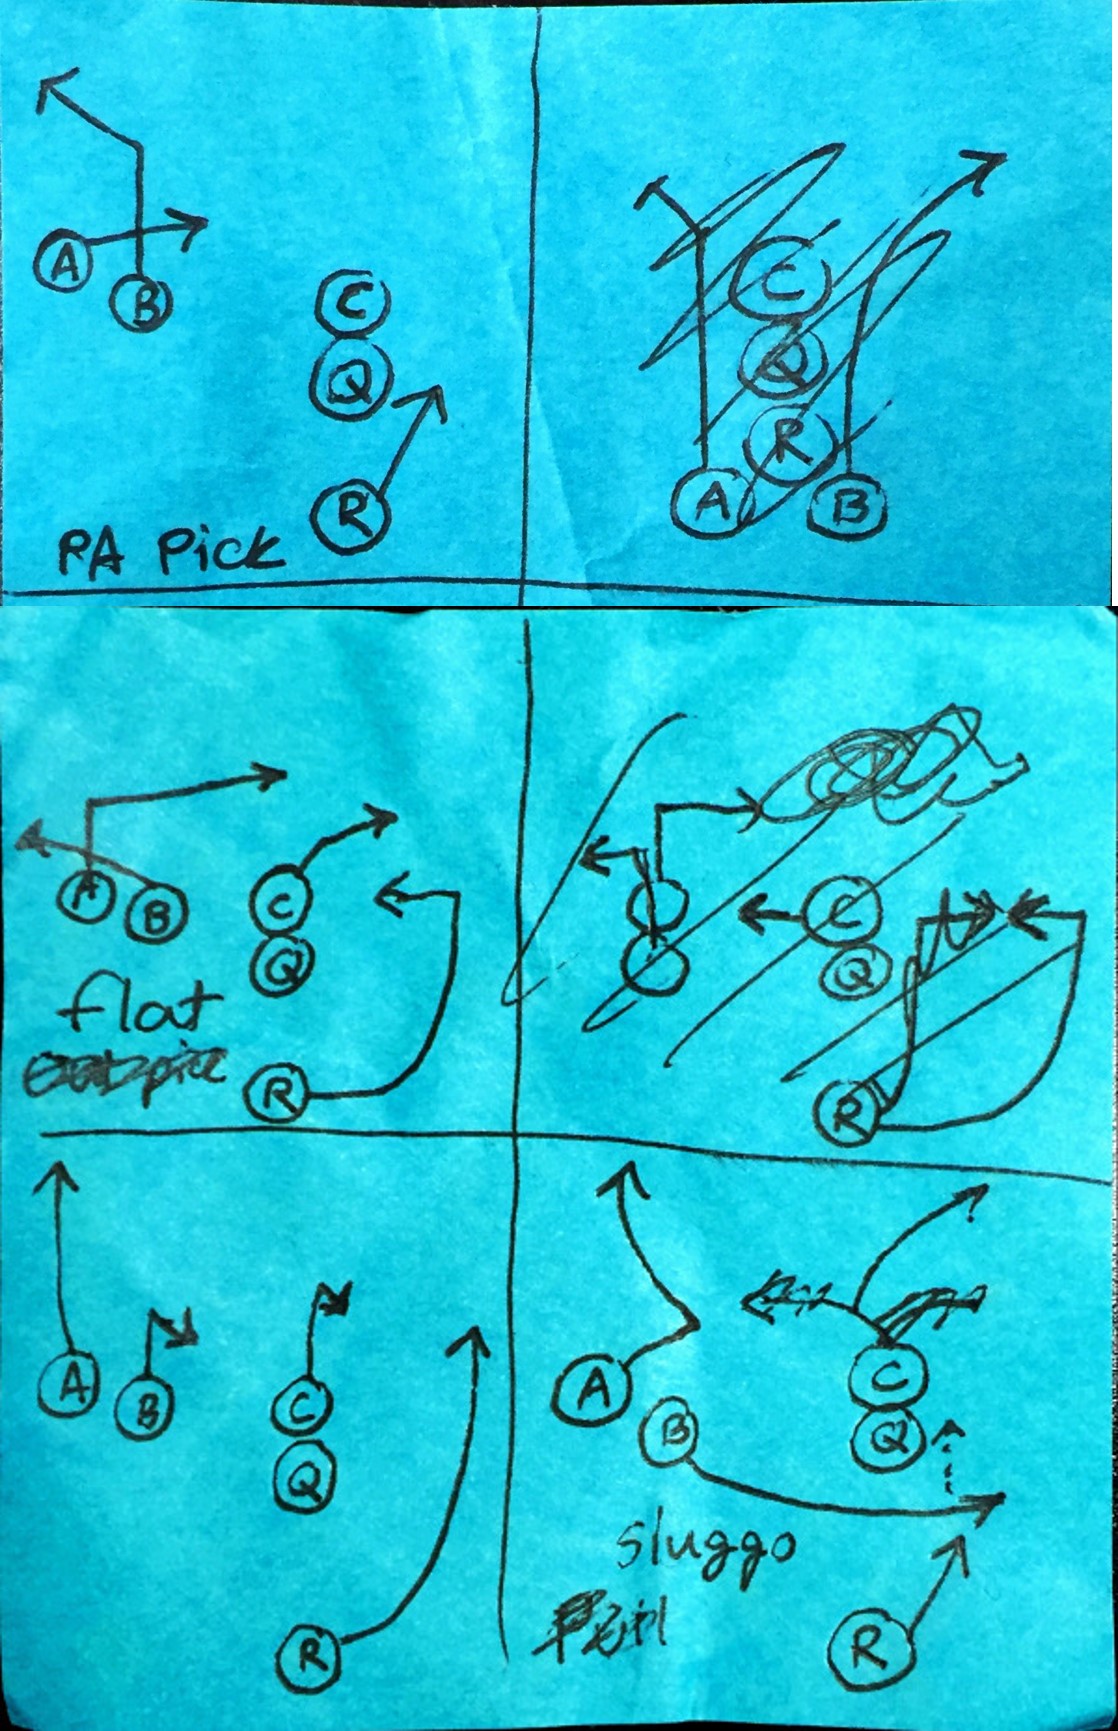 A
B
C
Q
R
PA Pick
C
Q
R
A B
A B C
Q
flat
R
C
Q
R
A B C
Q
R
A
C
B
Q
Sluggo
R